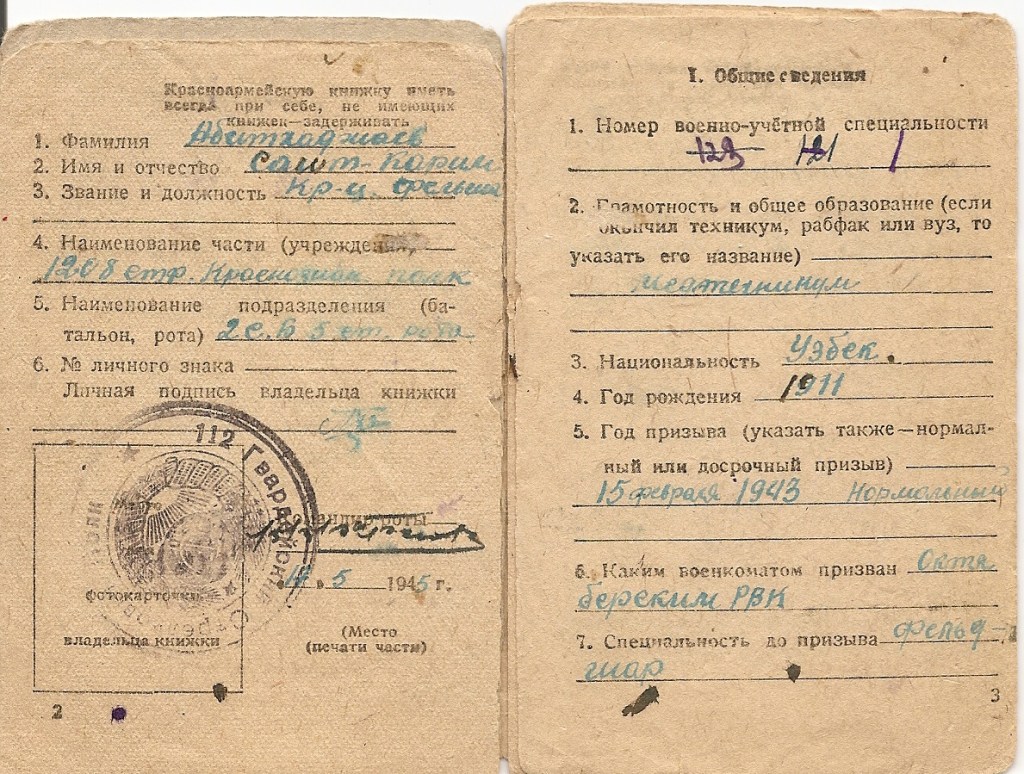 Красноармейскую книжку иметь
всегда при себе, не имеющих
книжек—задерживать
1. Фамилия Абитхаджаев
2. Имя и отчество Саит-Карим
3. Звание и должность Кр-ц. фельдш
4. Наименование части (учреждения)
1208 стр. Краснозн полк
5. Наименование подразделения (ба-
тальон, рота) 2 с. б 5 ст. рота
6. № личного знака
Личная подпись владельца книжки
112 Гвардейский Стрелковый
Командир роты
14 в 5 1945 г.
фотокарточки
владельца книжки
(Место
(печати части)
2
I. Общие сведения
1. Номер военно-учётной специальности
123 121
2. Грамотность и общее образование (если
окончил техникум, рабфак или вуз, то
указать его название)
Медтехникум
3. Национальность Узбек.
4. Год рождения 1911
5. Год призыва (указать также—нормал-
ный или досрочный призыв)
15 февраля 1943 Нормальный
6. Каким военкоматом призван Октя
берским РВК
7. Специальность до призыва Фельд-
шар
3